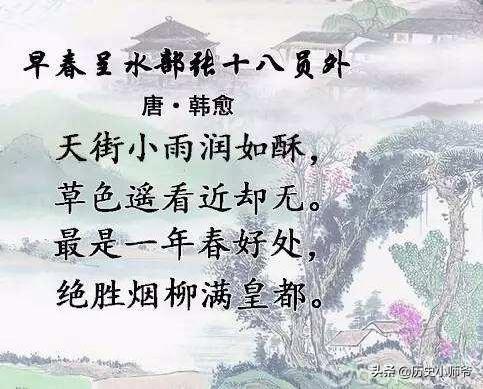 早春呈水部张十八员外
唐·韩愈
天街小雨润如酥，
草色遥看近却无。
最是一年春好处，
绝胜烟柳满皇都。
头条 @历史小师爷